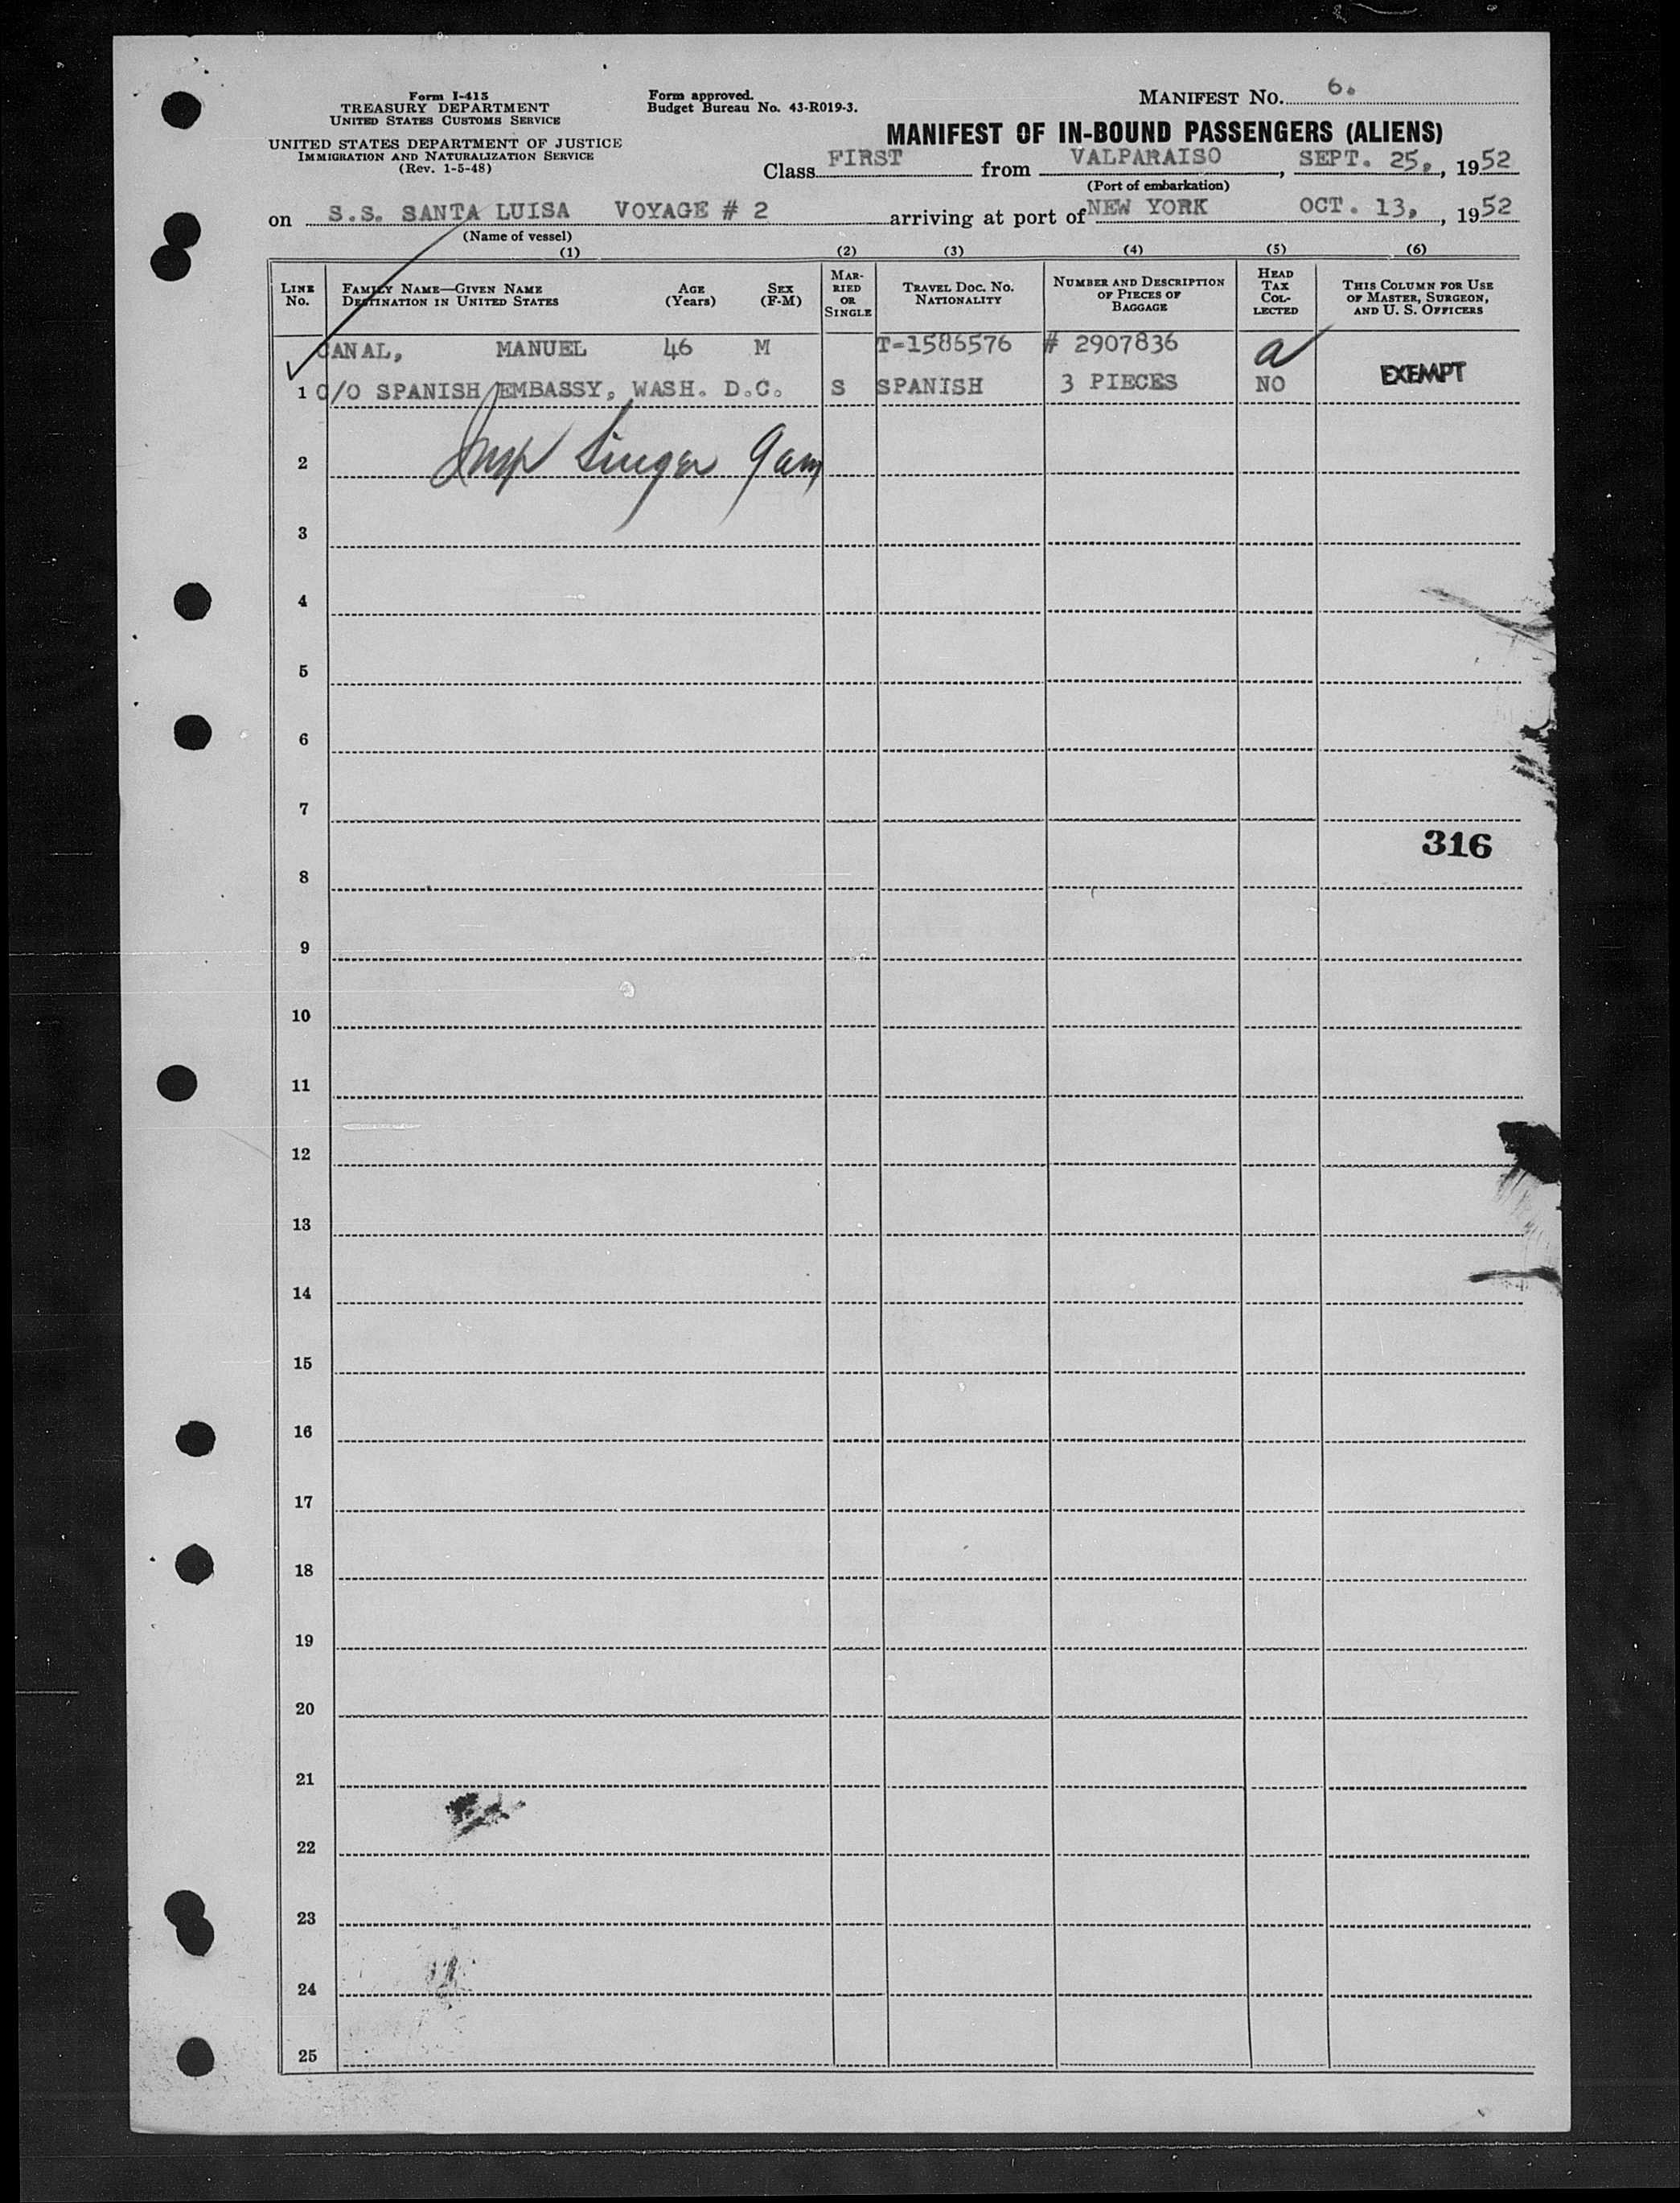 Form I-415
TREASURY DEPARTMENT
UNITED STATES CUSTOMS SERVICE
UNITED STATES DEPARTMENT OF JUSTICE
IMMIGRATION AND NATURALIZATION SERVICE
(Rev. 1-5-48)
Form approved.
Budget Bureau No. 43-R019-3.
MANIFEST No. 6.
MANIFEST OF IN-BOUND PASSENGERS (ALIENS)
Class FIRST from VALPARAISO, SEPT. 25,, 1952
(Port of embarkation)
on S.S. SANTA LUISA VOYAGE # 2 arriving at port of NEW YORK OCT. 13,, 1952
(Name of vessel)
(1) (2) (3) (4) (5) (6)
LINE No.
FAMILY NAME—GIVEN NAME DESTINATION IN UNITED STATES
AGE (Years)
SEX (F-M)
MARRIED OR SINGLE
TRAVEL DOC. No. NATIONALITY
NUMBER AND DESCRIPTION OF PIECES OF BAGGAGE
HEAD TAX COLLECTED
THIS COLUMN FOR USE OF MASTER, SURGEON, AND U. S. OFFICERS
CANAL, MANUEL 46 M T-1586576 # 2907836 a
1 C/O SPANISH EMBASSY, WASH. D.C. S SPANISH 3 PIECES NO EXEMPT
2 Singer 9am
3
4
5
6
7
316
8
9
10
11
12
13
14
15
16
17
18
19
20
21
22
23
24
25